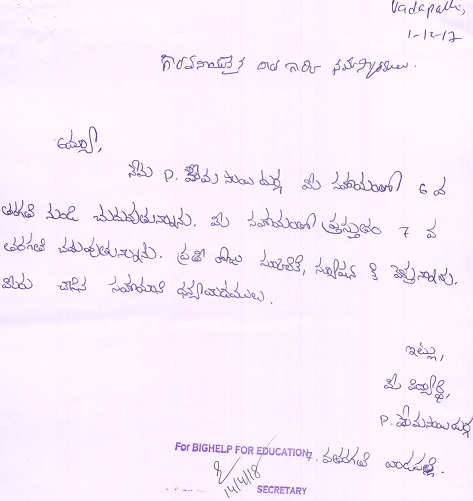 Vadapalli,
1-12-17
గౌరవనీయులైన దాత గారికి నమస్కారములు.
అయ్యా,
నేను P. హేమ సాయి దుర్గ మీ సహాయంతో 6 వ
తరగతి నుండి చదువుతున్నాను. మీ సహాయంతో ప్రస్తుతం 7 వ
తరగతి చదువుతున్నాను. ప్రతి రోజు స్కూలుకి, ట్యూషన్ కి వెళ్తున్నాను.
మీరు చేసిన సహాయానికి ధన్యవాదములు.
ఇట్లు,
మీ విద్యార్థి,
P. హేమసాయి దుర్గ
7. వ తరగతి వాడపల్లి.
For BIGHELP FOR EDUCATION
14/4/18
SECRETARY